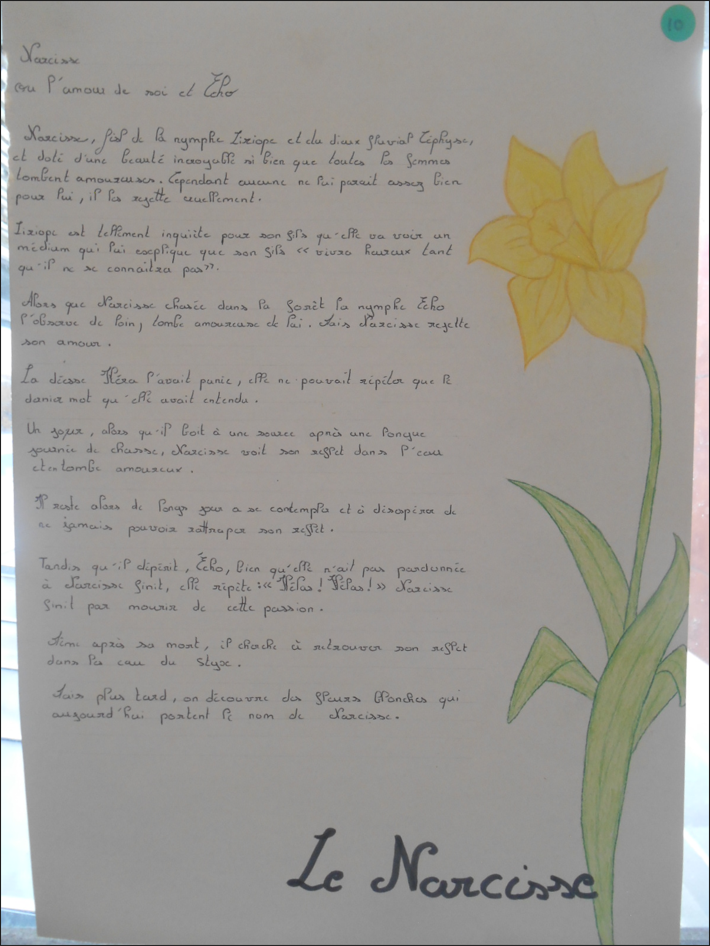 10
Narcisse
ou l'amour de soi et Écho
Narcisse, fils de la nymphe Liriope et du dieux fluvial Céphyse,
et doté d'une beauté incroyable si bien que toutes les femmes
tombent amoureuses. Cependant aucune ne lui parait assez bien
pour lui, il les rejette cruellement.
Liriope est tellment inquiète pour son fils qu'elle va voir un
médium qui lui esxplique que son fils « vivra heureux tant
qu'il ne se connaitra pas".
Alors que Narcisse chasse dans la forêt la nymphe Écho
l'observe de loin, tombe amoureuse de lui. Mais Narcisse rejette
son amour.
La déesse Héra l'avait punie, elle ne pouvait répéter que le
dernier mot qu'elle avait entendu.
Un jour, alors qu'il boit à une source après une longue
journée de chasse, Narcisse voit son reflet dans l'eau
et en tombe amoureux.
Il reste alors de longs jour a se contempler et à désespérer de
ne jamais pouvoir rattraper son reflet.
Tandis qu'il dépérit, Écho, bien qu'elle n'ait pas pardonnée
à Narcisse finit, elle répète : « Hélas ! Hélas ! » Narcisse
finit par mourir de cette passion.
après sa mort, il cherche à retrouver son reflet
dans la eau du Styxe.
Mais plus tard, on découvre des fleurs blanches qui
aujourd'hui portent le nom de Narcisse.
Le Narcisse